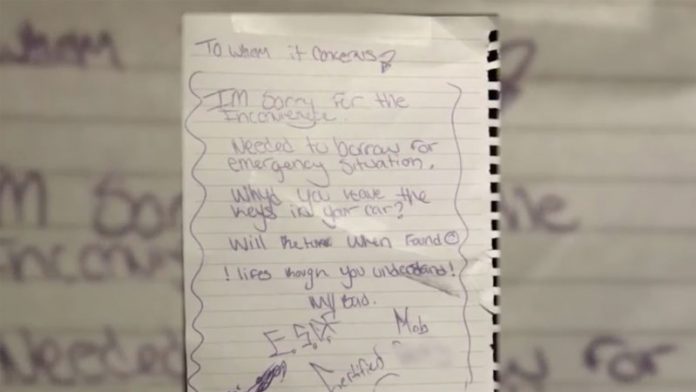 To whom it concerns
I'M Sorry for the
Inconvience.
Needed to borrow for
emergency situation.
Why'd you leave the
keys in your car?
Will be        When found ☺
! lifes tough you understand!
My bad.
E.S.K
Mob
Certified